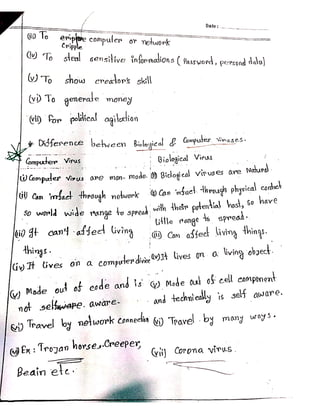 Date:
(iii) To cripple computer or network
Cripple
(iv) To steal sensitive informations (Password, personal data)
(v) To show creator's skill
(vi) To generate money
(vii) For political agitation
* Difference between Biological & Computer Viruses.
Computer Virus
Biological Virus
(i) Computer virus are man-made.
(i) Biological viruses are Natural
(ii) Can infect through network
so world wide range to spread
(ii) Can infect through physical contact
with their potential host, so have
little range to spread.
(iii) It can't affect living
things.
(iii) Can affect living things.
(iv) It lives on a computer drive
(iv) It lives on a living object.
(v) Made out of code and is
not self aware.
(v) Made out of cell component
and technically is self aware.
(vi) Travel by network connection
(vi) Travel by many ways.
(vii) Ex: Trojan horses, Creeper,
Beain etc.
(vii) Corona virus.